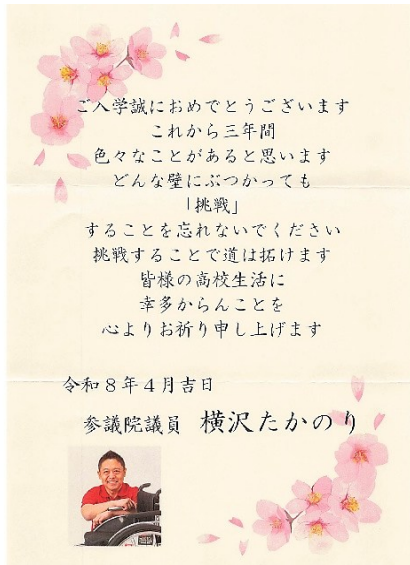 ご入学誠におめでとうございます
これから三年間
色々なことがあると思います
どんな壁にぶつかっても
「挑戦」
することを忘れないでください
挑戦することで道は拓けます
皆様の高校生活に
幸多からんことを
心よりお祈り申し上げます
令和8年4月吉日
参議院議員 横沢たかのり